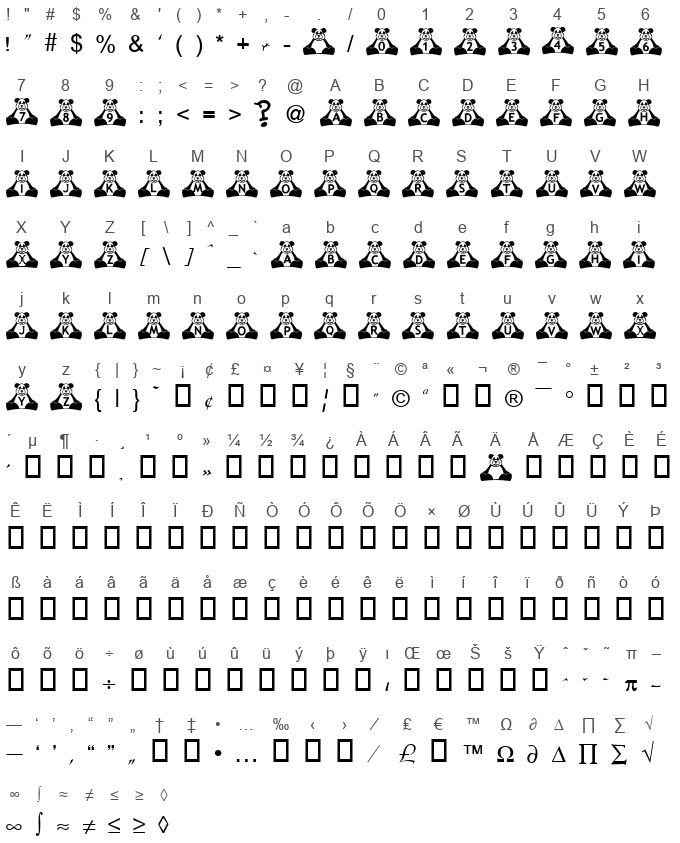 ! " # $ % & ' ( ) * + , - . / 0 1 2 3 4 5 6
! " # $ % & ' ( ) * + , - / 0 1 2 3 4 5 6
7 8 9 : ; < = > ? @ A B C D E F G H
7 8 9 : ; < = > ? @ A B C D E F G H
I J K L M N O P Q R S T U V W
I J K L M N O P Q R S T U V W
X Y Z [ \ ] ^ _ ` a b c d e f g h i
X Y Z [ \ ] ^ _ ` A B C D E F G H I
j k l m n o p q r s t u v w x
J K L M N O P Q R S T U V W X
y z { | } ~ ¡ ¢ £ ¤ ¥ ¦ § ¨ © ª « ¬ ® ¯ ° ± ² ³
Y Z { | } ~ ¢ ¦ ¨ © ª ® ¯ °
´ µ ¶ · ¸ ¹ º » ¼ ½ ¾ ¿ À Á Â Ã Ä Å Æ Ç È É
´ ¸ »
Ê Ë Ì Í Î Ï Ð Ñ Ò Ó Ô Õ Ö × Ø Ù Ú Û Ü Ý Þ
ß à á â ã ä å æ ç è é ê ë ì í î ï ð ñ ò ó
ô õ ö ÷ ø ù ú û ü ý þ ÿ ı Œ œ Š š Ÿ ˆ ˇ ˜ π –
÷ ı ˆ ˇ ˜ π –
— ‘ ’ ‚ “ ” „ † ‡ • … ‰ ‹ › ⁄ ₤ € ™ Ω ∂ ∆ ∏ ∑ √
— ‘ ’ ‚ “ ” „ • … ⁄ ₤ ™ Ω ∂ ∆ ∏ ∑ √
∞ ∫ ≈ ≠ ≤ ≥ ◊
∞ ∫ ≈ ≠ ≤ ≥ ◊